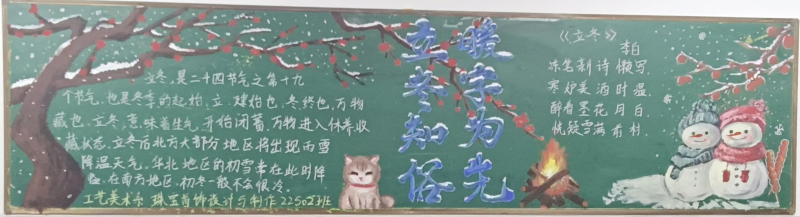 立冬，是二十四节气之第十九
个节气，也是冬季的起始。立，建始也，冬，终也，万物
藏也。立冬，意味着生气开始闭蓄，万物进入休养收
藏状态。立冬后北方大部分地区将出现雨雪
降温天气，华北地区的初雪常在此时降
临，在南方地区，初冬一般不会很冷。
工艺美术系 珠宝首饰设计与制作22502班
立冬知俗
暖字为先
《立冬》
李白
冻笔新诗懒写，
寒炉美酒时温，
醉看墨花月白，
恍疑雪满前村。